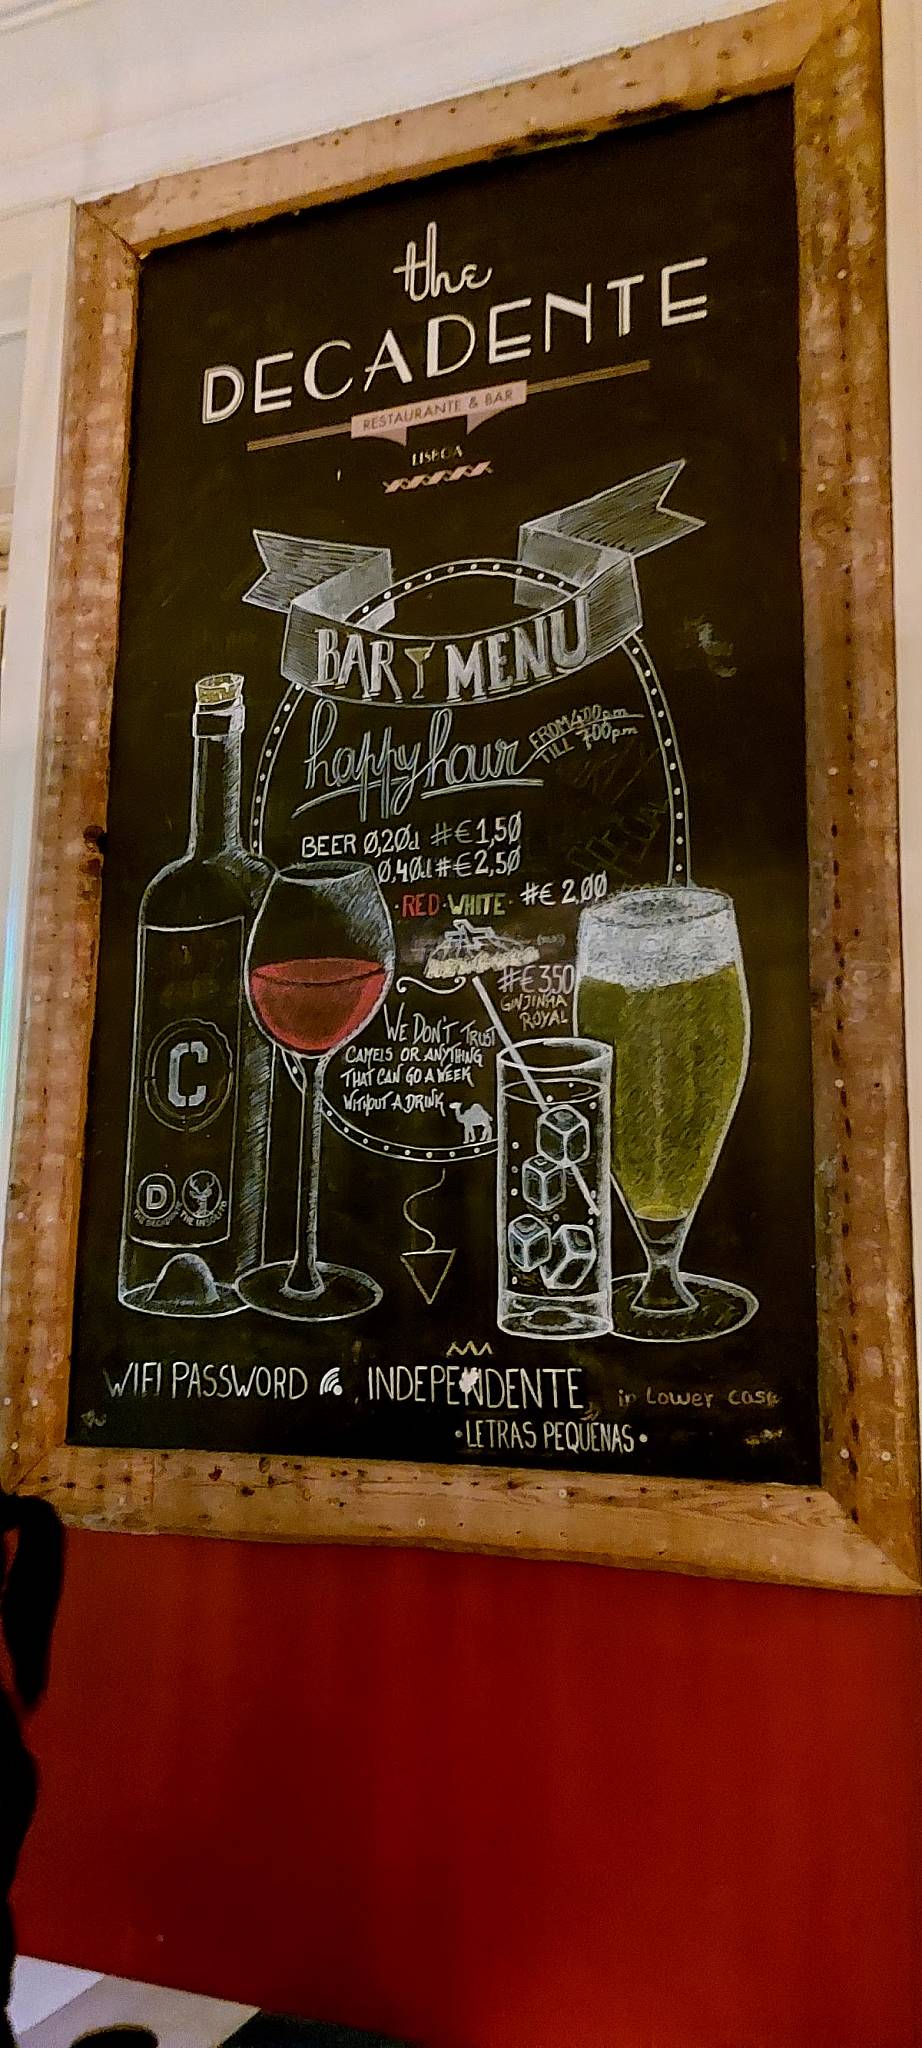 the
DECADENTE
RESTAURANTE & BAR
LISBOA
BAR MENU
happy hour
FROM 4:00 pm
TILL 7:00 pm
BEER 0,20d #€1,50
0,40d #€2,50
·RED·WHITE· #€ 2,00
#€ 3,50
GINJINHA
ROYAL
WE DON'T TRUST
CAMELS OR ANYTHING
THAT CAN GO A WEEK
WITHOUT A DRINK
C
D
WIFI PASSWORD INDEPENDENTE in Lower case
•LETRAS PEQUENAS•